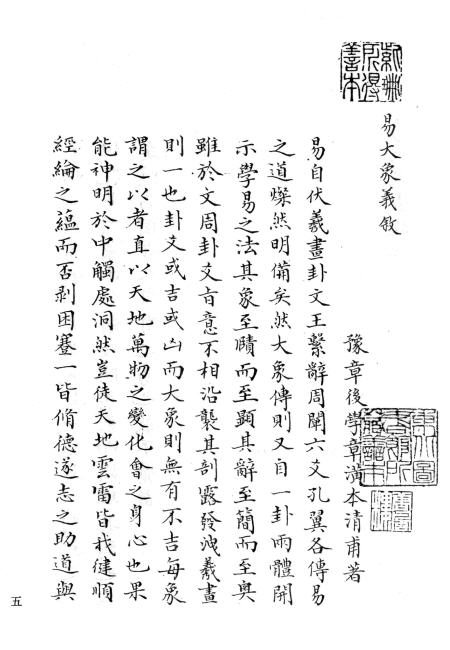 易大象義敘
豫章後學章潢本清甫著
東北圖書館所藏善本
易自伏羲畫卦文王繫辭周闡六爻孔翼各傳易
之道燦然明備矣然大象傳則又自一卦兩體開
示學易之法其象至賾而至顯其辭至簡而至奧
雖於文周卦爻旨意不相沿襲其剖露發洩羲畫
則一也卦爻或吉或凶而大象則無有不吉每象
謂之以者直以天地萬物之變化會之身心也果
能神明於中觸處洞然豈徒天地雲雷皆我健順
經綸之蘊而否剥困蹇一皆脩德遂志之助道與
五